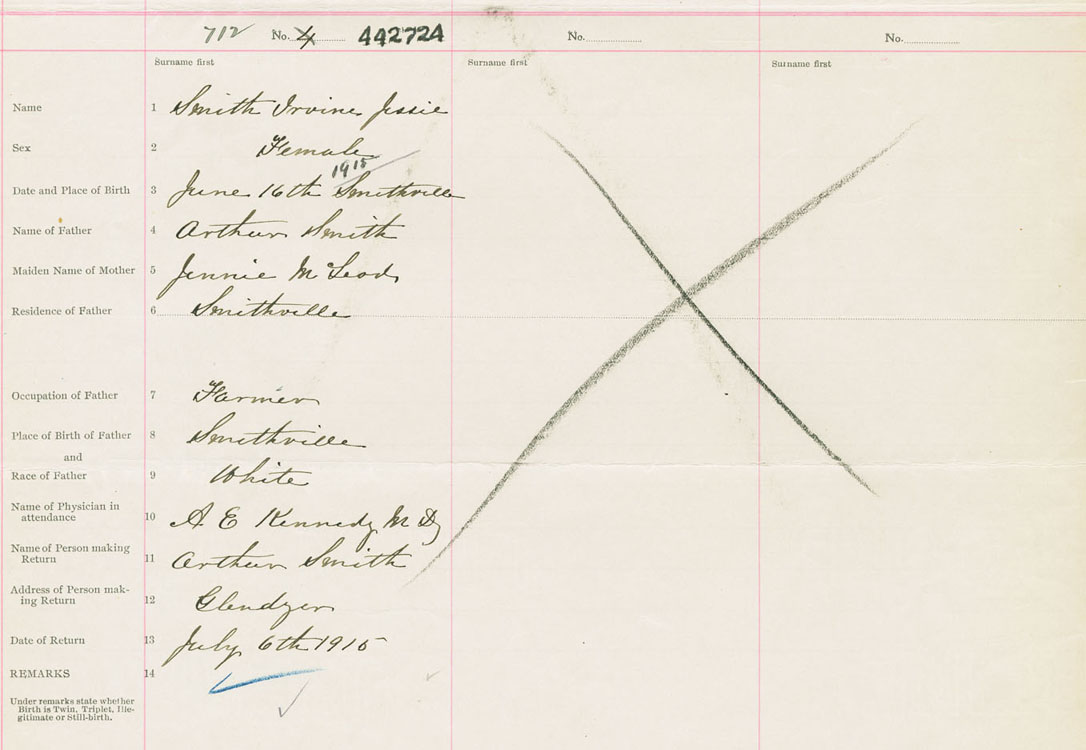 712 No. 4 442724 No. No.
Surname first Surname first Surname first
Name 1 Smith Irvine Jessie
Sex 2 Female
1915
Date and Place of Birth 3 June 16th Smithville
Name of Father 4 Arthur Smith
Maiden Name of Mother 5 Jennie McLeod
Residence of Father 6 Smithville
Occupation of Father 7 Farmer
Place of Birth of Father 8 Smithville
and
Race of Father 9 White
Name of Physician in
attendance 10 A E Kennedy M D
Name of Person making
Return 11 Arthur Smith
Address of Person mak-
ing Return 12 Glendyer
Date of Return 13 July 6th 1915
REMARKS 14
Under remarks state whether
Birth is Twin, Triplet, Ille-
gitimate or Still-birth.